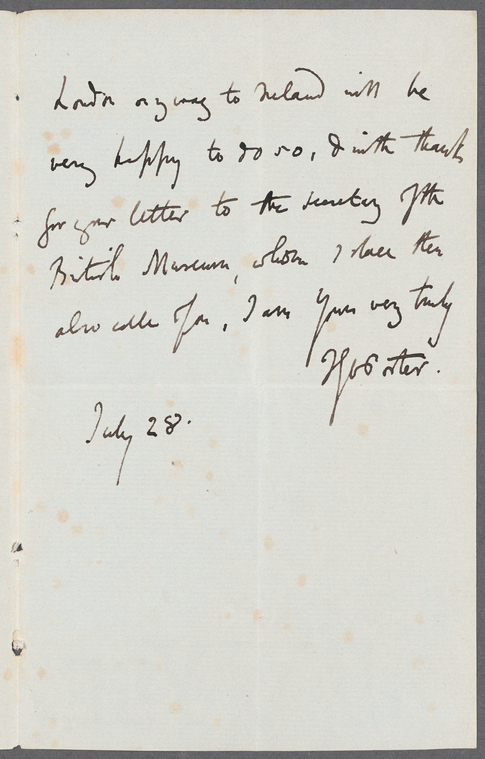 London on my way to Ireland will be
very happy to do so, & with thanks
for your letter to the secretary of the
British Museum, whom I shall then
also call upon, I am Yours very truly
July 28.